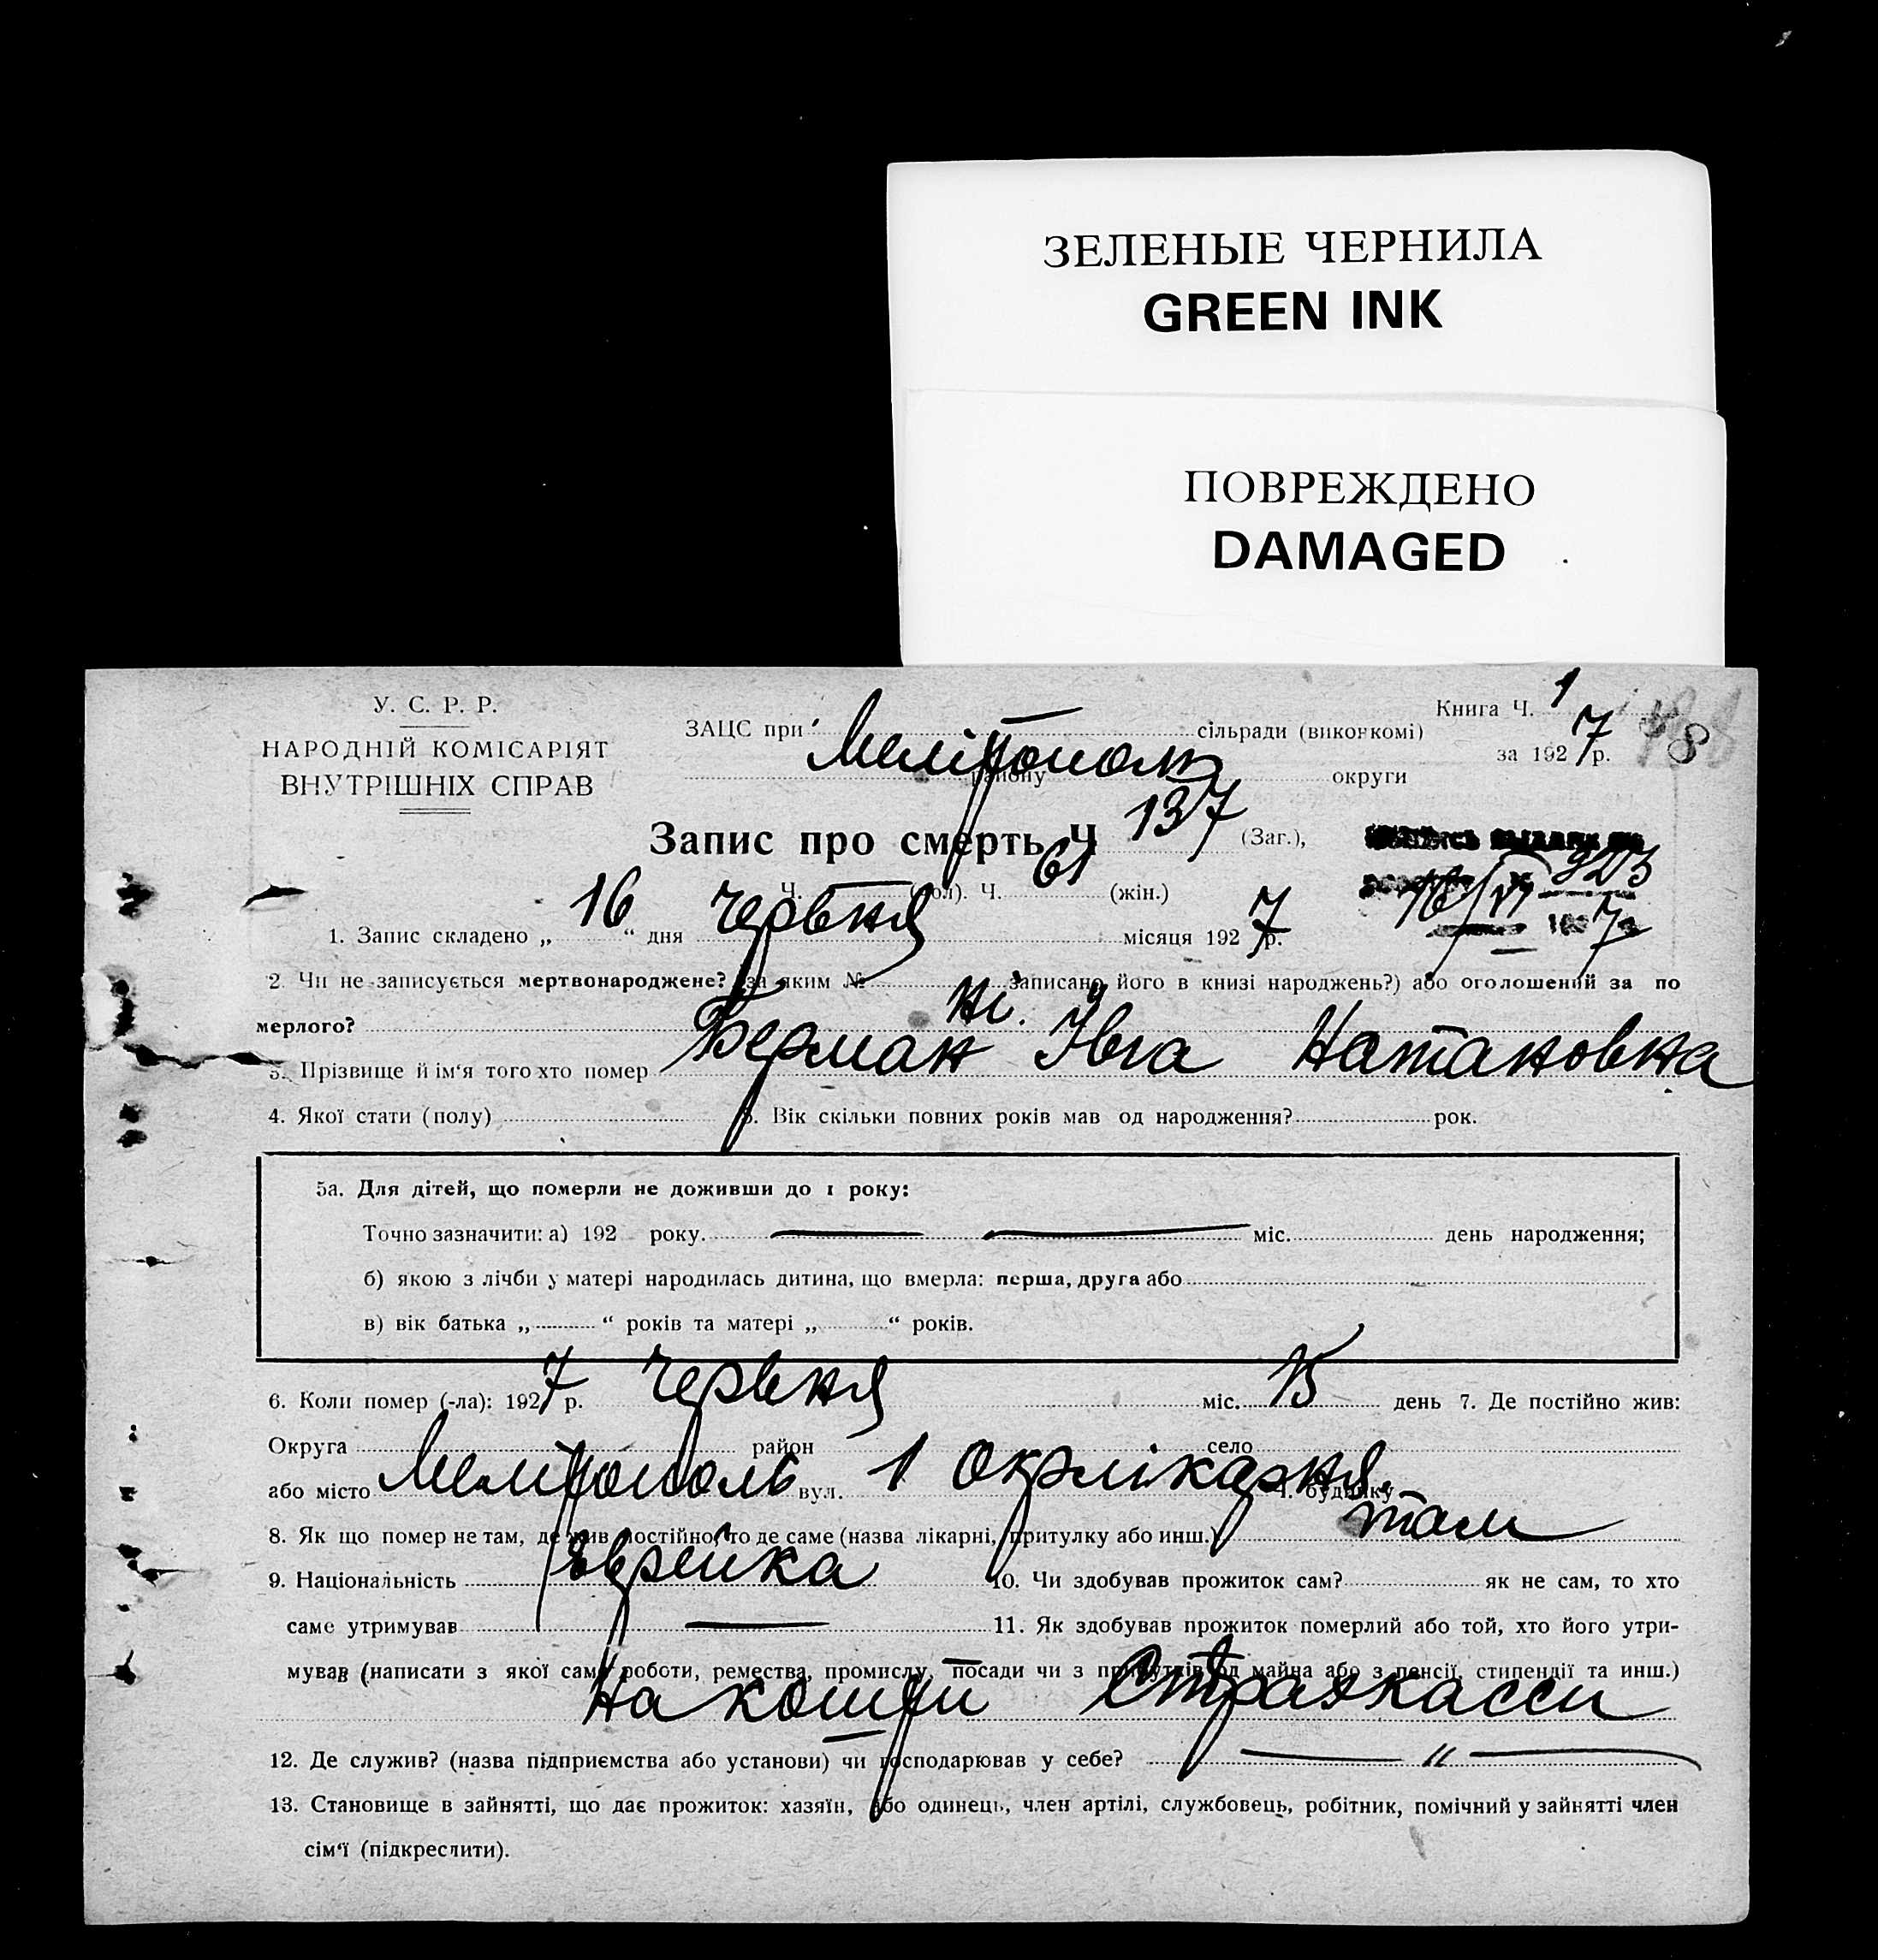 ЗЕЛЕНЫЕ ЧЕРНИЛА
GREEN INK
ПОВРЕЖДЕНО
DAMAGED
У. С. Р. Р.
НАРОДНІЙ КОМІСАРІЯТ
ВНУТРІШНІХ СПРАВ
Книга Ч. 1
ЗАЦС при Мелітополь сільради (виконкомі)
за 1927 р. 8
району округи
Запис про смерть Ч 137 (Заг.),
Ч. — (пол). Ч. 61 (жін.)
323
16/VI 7
1. Запис складено „16“ дня червня місяця 1927 р.
2. Чи не записується мертвонароджене? (за яким № записано його в книзі народжень?) або оголошений за по
мерлого? ні.
3. Прізвище й ім'я того хто помер Берман Ївга Натановна
4. Якої стати (полу) 5. Вік скільки повних років мав од народження? рок.
5а. Для дітей, що померли не доживши до 1 року:
Точно зазначити: а) 192 року. — — міс. день народження;
б) якою з лічби у матері народилась дитина, що вмерла: перша, друга або
в) вік батька „ “ років та матері „ “ років.
6. Коли помер (-ла): 1927 р. червня міс. 15 день 7. Де постійно жив:
Округа район село
або місто Мелітополь вул. 1 Окрлікарня. Ч. будинку
8. Як що помер не там, де жив постійно, то де саме (назва лікарні, притулку або инш.) там
9. Національність Єврейка 10. Чи здобував прожиток сам? як не сам, то хто
саме утримував — 11. Як здобував прожиток померлий або той, хто його утри-
мував (написати з якої саме роботи, ремества, промислу, посади чи з прибутків од майна або з пенсії, стипендії та инш.)
На кошти Страхкасси
12. Де служив? (назва підприємства або установи) чи господарював у себе? — „ —
13. Становище в зайнятті, що дає прожиток: хазяїн, або одинець, член артілі, службовець, робітник, помічний у зайнятті член
сім'ї (підкреслити).